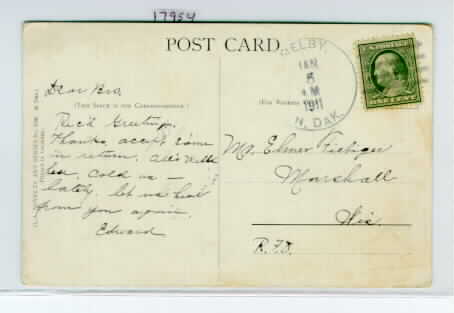 17954
POST CARD
SELBY,
JAN
5
AM
1911
N. DAK.
Dear Bro.
(THIS SPACE IS FOR CORRESPONDENCE.)
Rec'd Greetings,
Thanks, accept same
in return. All's well
but, cold as —
lately. let us hear
from you again.
Edward
Mr. Elmer Fiebiger
Marshall
Wis.
R.F.D.